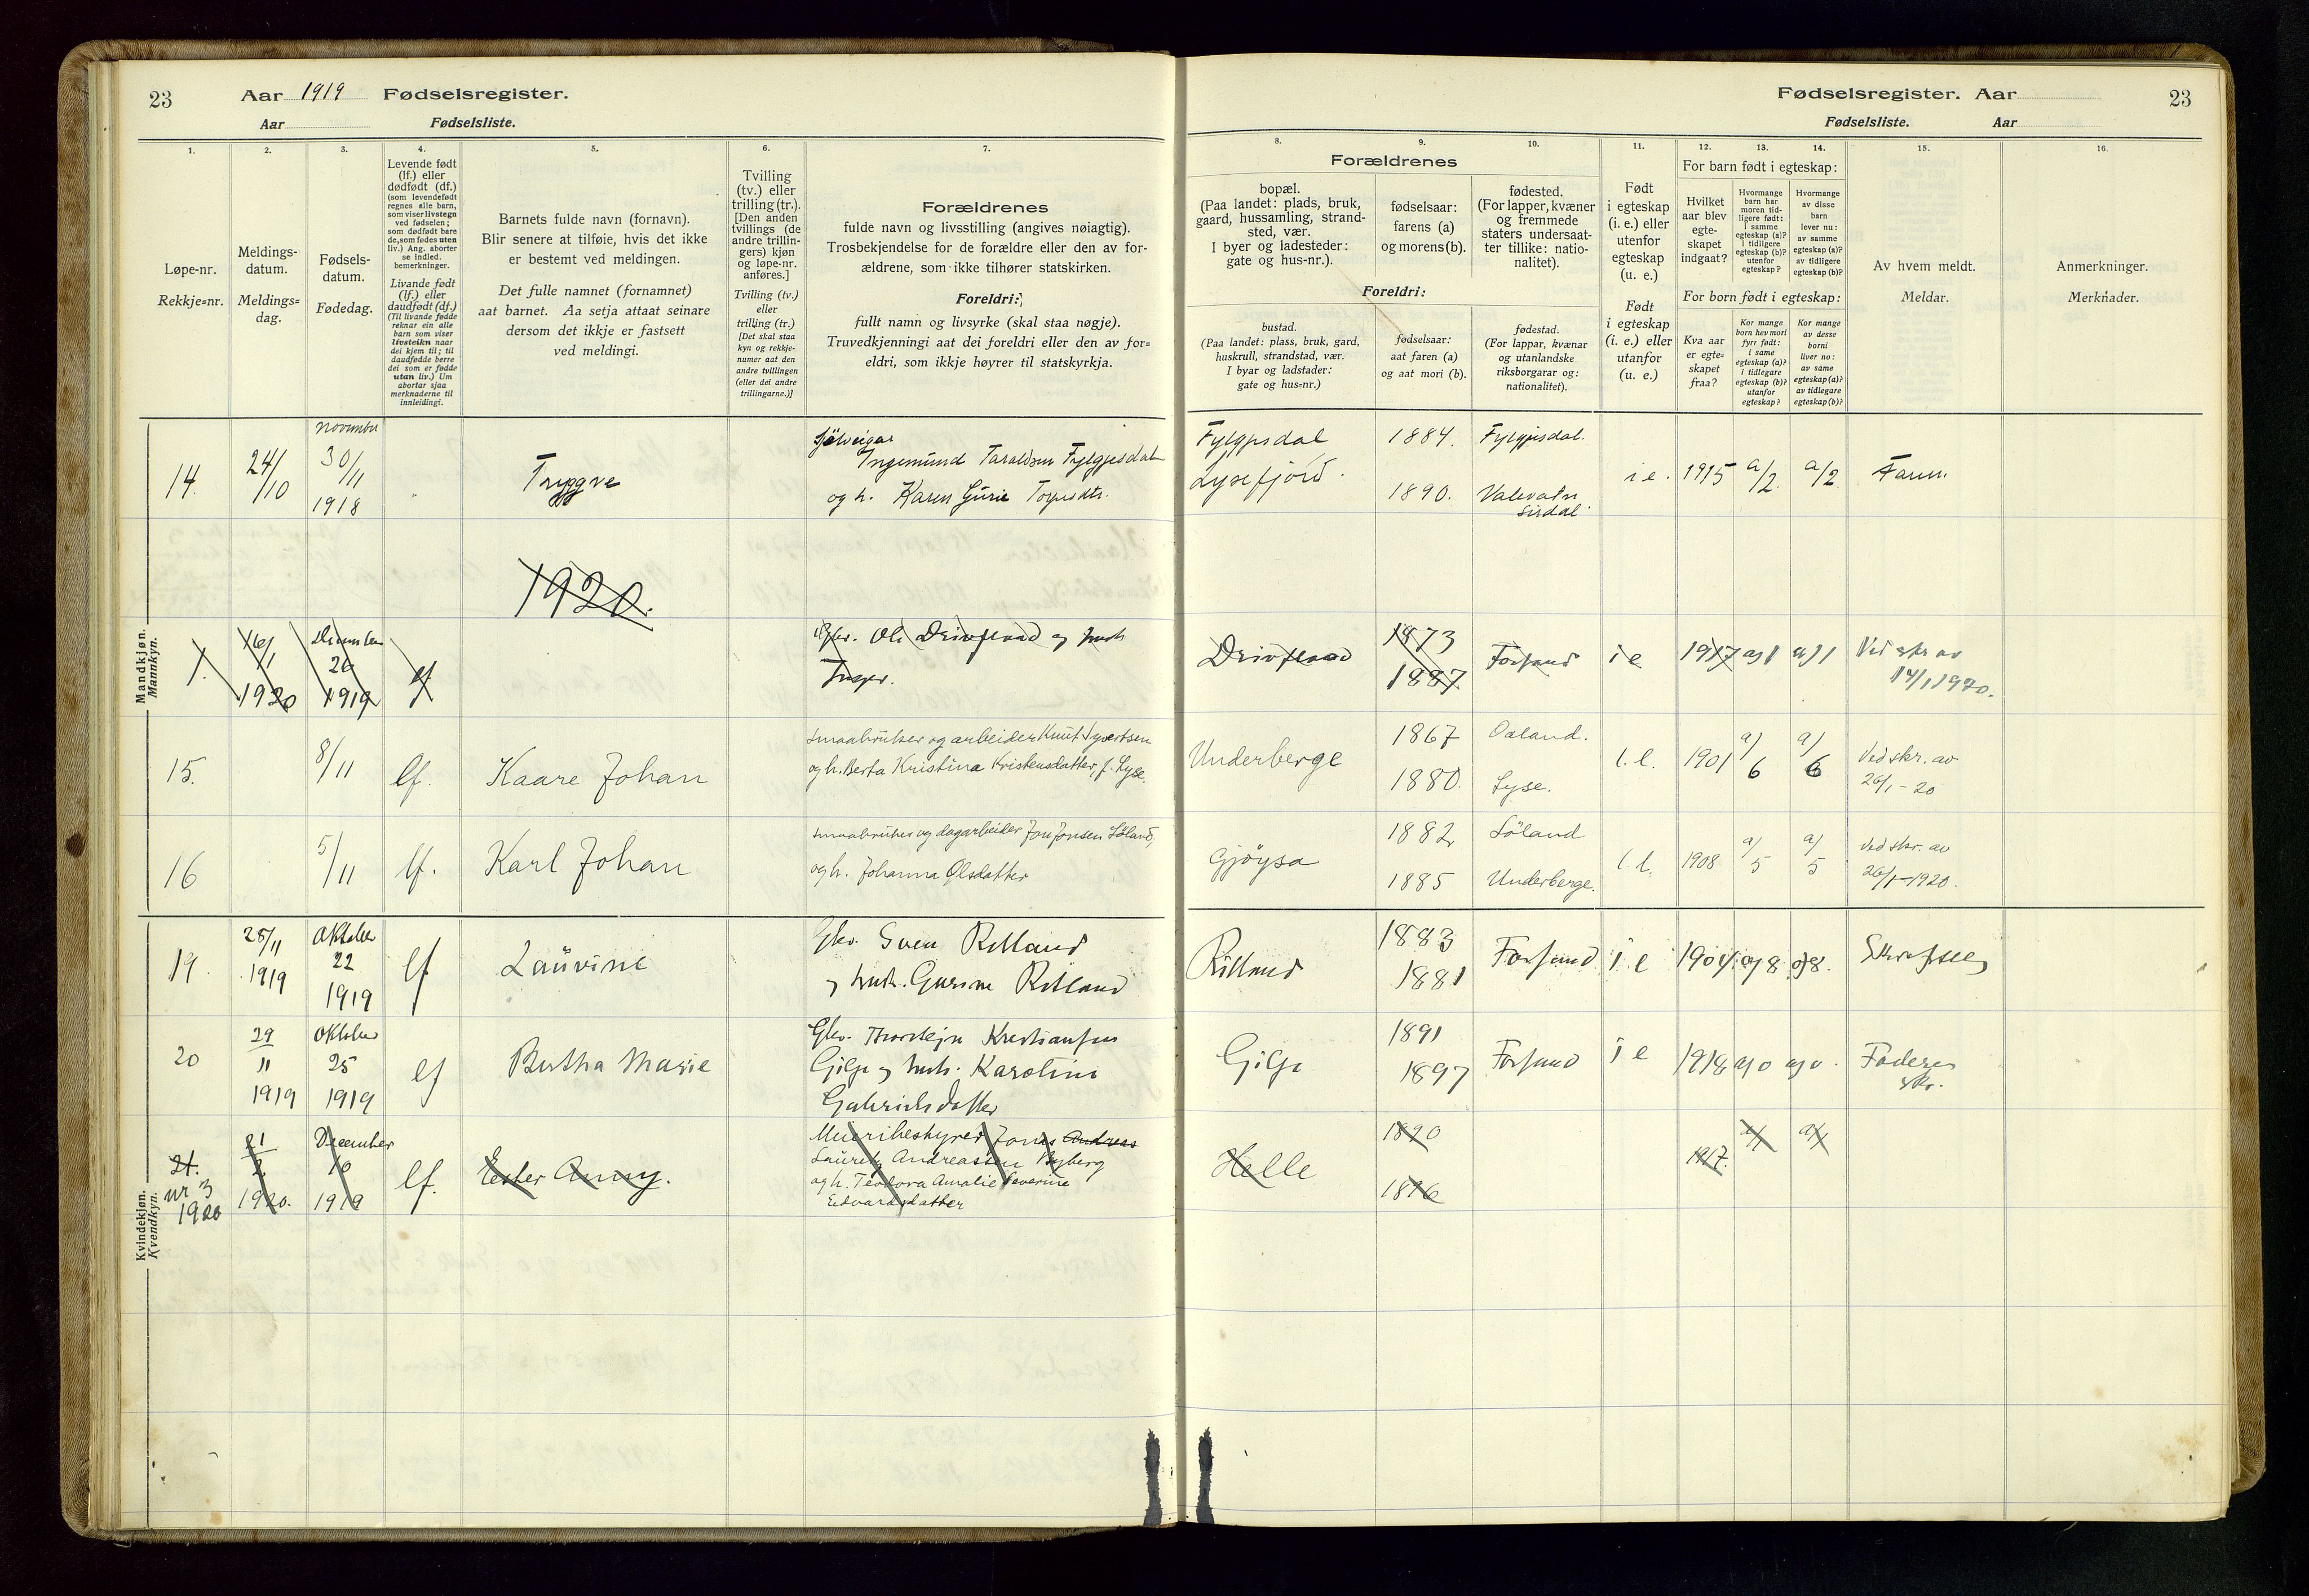 23 Aar 1919 Fødselsregister.
Aar Fødselsliste.
Fødselsregister. Aar 23
Fødselsliste. Aar
1.
Løpe-nr.
Rekkje=nr.
2.
Meldings-
datum.
Meldings=
dag.
3.
Fødsels-
datum.
Fødedag.
4.
Levende født
(lf.) eller
dødfødt (df.)
(som levendefødt
regnes alle barn,
som viser livstegn
ved fødselen;
som dødfødt bare
de, som fødes uten
liv.) Ang. aborter
se indled.
bemerkninger.
Livande født
(lf.) eller
daudfødt (df.)
(Til livande fødde
reknar ein alle
barn som viser
livsteikn naar
dei kjem til; til
daudfødde berre
dei som er fødde
utan liv.) Um
abortar sjaa
merknaderne til
innleidingi.
5.
Barnets fulde navn (fornavn).
Blir senere at tilføie, hvis det ikke
er bestemt ved meldingen.
Det fulle namnet (fornamnet)
aat barnet. Aa setja attaat seinare
dersom det ikkje er fastsett
ved meldingi.
6.
Tvilling
(tv.) eller
trilling (tr.).
[Den anden
tvillings (de
andre trillin-
gers) kjøn
og løpe-nr.
anføres.]
Tvilling (tv.)
eller
trilling (tr.)
[Det skal staa
kyn og rekkje-
numer aat den
andre tvillingen
(eller dei andre
trillingarne.)]
7.
Forældrenes
fulde navn og livsstilling (angives nøiagtig).
Trosbekjendelse for de forældre eller den av for-
ældrene, som ikke tilhører statskirken.
Foreldri:
fullt namn og livsyrke (skal staa nøgje).
Truvedkjenningi aat dei foreldri eller den av for=
eldri, som ikkje høyrer til statskyrkja.
8.
Forældrenes
bopæl.
(Paa landet: plads, bruk,
gaard, hussamling, strand-
sted, vær.
I byer og ladesteder:
gate og hus-nr.).
Foreldri:
bustad.
(Paa landet: plass, bruk, gard,
huskrull, strandstad, vær.
I byar og ladstader:
gate og hus=nr.)
9.
fødselsaar:
farens (a)
og morens (b).
fødselsaar:
aat faren (a)
og aat mori (b).
10.
fødested.
(For lapper, kvæner
og fremmede
staters undersaat-
ter tillike: natio-
nalitet).
fødestad.
(For lappar, kvænar
og utanlandske
riksborgarar og:
nationalitet).
11.
Født
i egteskap
(i. e.) eller
utenfor
egteskap
(u. e.)
Født
i egteskap
(i. e.) eller
utanfor
(u. e.)
For barn født i egteskap:
12.
Hvilket
aar blev
egte-
skapet
indgaat?
13.
Hvormange
barn har
moren tid-
ligere født:
i samme
egteskap (a)?
i tidligere
egteskap (b)?
utenfor
egteskap?
14.
Hvormange
av disse
barn
lever nu:
av samme
egteskap (a)?
av tidligere
egteskap (b)?
For born født i egteskap:
Kva aar
er egte=
skapet
fraa?
Kor mange
born hev mori
fyrr født:
i same
egteskap (a)?
i tidlegare
egteskap (b)?
utanfor
egteskap?
Kor mange
av desse
borni
liver no:
av same
egteskap (a)?
av tidlegare
egteskap (b)?
15.
Av hvem meldt.
Meldar.
16.
Anmerkninger.
Merknader.
Mandkjøn.
Mannkyn.
14. 24/10 November 30/11 1918 Trygve
Sjølveigar
Ingemund Taraldsen Fylgjesdal
og h. Karen Gurie
Fylgjesdal
Lysefjord.
1884. 1890.
Fylgjesdal.
Valevatn
Sirdal
i e. 1915 a/2 a/2 Faren
1920.
1. 16/1 1920 December 26 1919 lf
Gbr. Ole Drivflaad og hust.
Inger.
Drivflaad 1873 1887 Forsand i e 1917 a) 1 a) 1 Ved skr av
14/1 1920.
15. 8/11 lf. Kaare Johan
Smaabruker og arbeider Knut Syvertsen
og h. Berta Kristina Kristensdatter, f. Lyse.
Underberge 1867 1880. Oaland. Lyse. i. e. 1901 a/6 a/6 Ved skr. av
26/1 - 20
16 5/11 lf. Karl Johan
Smaabruker og dagarbeider Jon Jonsen Løland,
og h. Johanna Olsdatter
Gjøysa 1882 1885 Løland Underberge. i. e. 1908 a/5 a/5 Ved skr. av
26/1-1920.
Kvindekjøn.
Kvendkyn.
19. 25/11 1919 Oktober 22 1919 lf Laurine
Gbr. Sven Rettland
og hust. Gurine Retland
1883 1881 Forsand i e 1904 a) 8 a) 8.
20 29/11 1919 Oktober 25 1919 lf Bertha Marie
Gbr. Thorstejn Kristiansen
Gilje og hust. Karoline
Gabrielsdatter
Gilje 1891 1897 Forsand i e 1918 a) 0 a) 0. Faderes
skr.
21. nr 3 1920 21/2 1920. December 10 1919 lf. Ester Anny.
Meieribestyrer Jonas Andreas
Lauritz Andreassen Byberg
og h. Teodora Amalie Severine
Edvardsdatter
Helle 1890 1896 1917. a/1 a/1